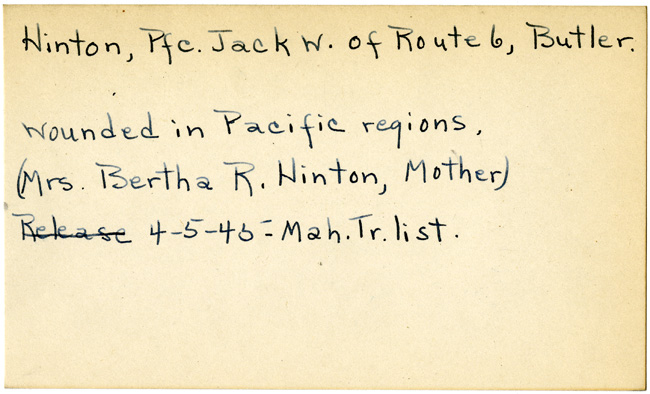 Hinton, Pfc. Jack W. of Route 6, Butler.
Wounded in Pacific regions.
(Mrs. Bertha R. Hinton, Mother)
Release 4-5-45-Mah. Tr. list.